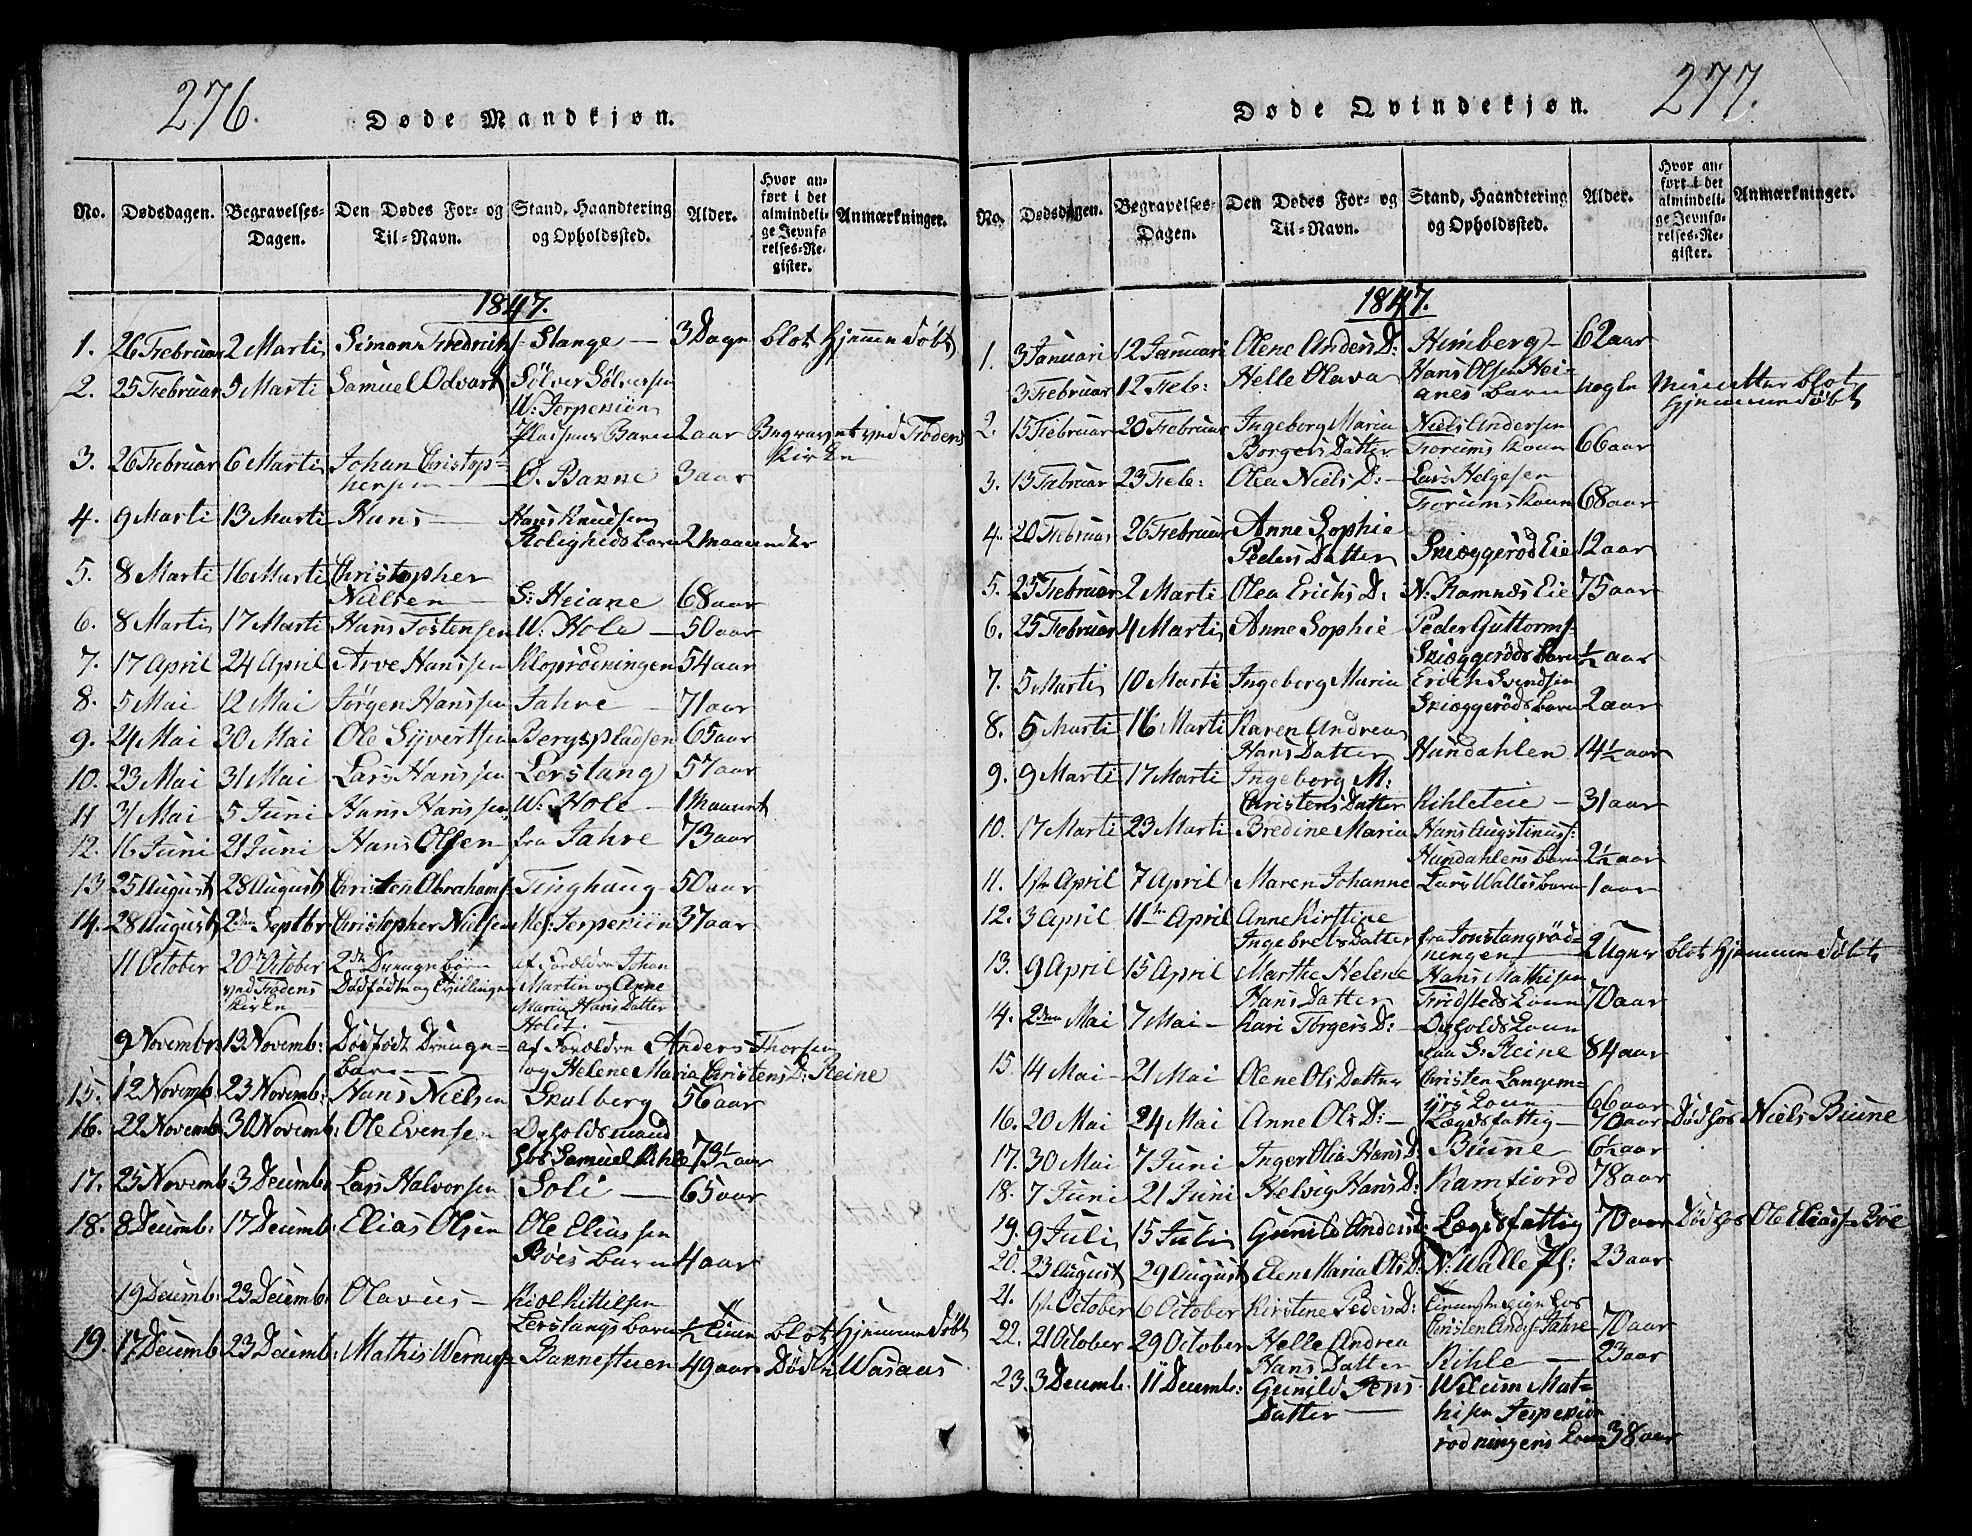 276.
Døde Mandkjøn.
No. Dødsdagen. Begravelses-Dagen. Den Dødes For- og Til-Navn. Stand, Haandtering og Opholdssted. Alder. Hvor anført i det almindelige Jevnførelses-Register. Anmærkninger.
1847.
1. 26 Februar 2 Marti Simon Fredriks: Stange — 3 Dage blot Hjemme Døbt
2. 25 Februar 5 Marti Samuel Odvart Sølver Sølvessen
W: Jerpekiøn
Pladsens Barn 2 aar Begravet ved Frødens
Kirke
3. 26 Februar 6 Marti Johan Christop=
hersen — O. Banne 3 aar
4. 9 Marti 13 Marti Hans — Hans Knudsen
Roligheds barn 2 maaneder
5. 8 Marti 16 Marti Christopher
Nielsen — S: Heiane 68 aar
6. 8 Marti 17 Marti Hans Tostensen W: Hole — 50 aar
7. 17 April 24 April Arve Hanssen Kloprødningen 54 aar
8. 5 Mai 12 Mai Jørgen Hanssen Jahre — 71 aar
9. 24 Mai 30 Mai Ole Syvertsen Bergspladsen 65 aar
10. 23 Mai 31 Mai Lars Hanssen Lerstang 57 aar
11 31 Mai 5 Juni Hans Hanssen W: Hole — 1 Maanet
12. 16 Juni 21 Juni Hans Olsen fra Jahre 73 aar
13 25 August 28 August Christen Abrahams: Tinghaug 50 aar
14. 28 August 2den Septbr Christopher Nielsen Mel: Jerpekiøn 37 aar
11 October 20 October 2de Drenge børn af Foreldre Johan
ved Frødens Dødfødte og Tvillinger Martin og Anne
Kirke Maria Hans Datter
Holdt. —
9 Novembr 13 Novemb: Dødfødt Drenge= af Foreldre Anders Thorsen
barn — og Helene Maria Christens D: Reine
15. 12 Novemb: 23 Novemb: Hans Nielsen Skulberg 56 aar
16. 22 Novemb 30 Novemb: Ole Evensen Opholdsmand
hos Samuel Kihle 73½ aar
17. 25 Novemb: 3 Decembr Lars Halvorsen Soli — 65 aar
18. 8 Decemb: 17 Decemb: Elias Olsen Ole Eliassen
Bøes Barn 4 aar
19 Decemb: 23 Decemb: Olavus — Kiøl Kittelsen
Lerstangs barn ½ Time blot Hjemme Døbt
19. 17 Decemb 23 Decemb: Mathis Werners: Bannestuen 49 aar Død i Wasaas
277.
Døde Qvindekjøn.
No. Dødsdagen. Begravelses-Dagen. Den Dødes For- og Til-Navn. Stand, Haandtering og Opholdssted. Alder. Hvor anført i det almindelige Jevnførelses-Register. Anmærkninger.
1847.
1. 3 Januari 12 Januari Olene Anders D: Himberg — 62 aar
3 Februar 12 Feb: Helle Olava Hans Olsen Hei=
anes barn nogle Minutter blot
Hjemmedøbt
2. 15 Februar 20 Februar Ingeborg Maria Niels Andersen
Borgers Datter Trorums Kone 66 aar
3. 13 Februar 23 Feb: Olea Niels D: — Lars Helgesen
Trorums Kone 68 aar
4. 20 Februar 26 Februar Anne Sophie
Peders Datter Skiæggerød Eie 12 aar
5. 25 Februar 2 Marti Olea Erichs D: N: Ramnæs Eie 75 aar
6. 25 Februar 4 Marti Anne Sophie Peder Guttorms=
Skiæggerøds Barn ½ aar
7. 5 Marti 10 Marti Ingeborg Maria Erich Svendsen
Skiæggerøds barn 2 aar
8. 5 Marti 16 Marti Karen Andrea
Hans Datter Hundahlen 14½ aar
9. 9 Marti 17 Marti Ingeborg M:
Christens Datter Kihleteie — 31 aar
10. 17 Marti 23 Marti Bredine Maria Hans Augstinus:
Hundahlens barn 2½ aar
11. 1ste April 7 April Maren Johanne Lars Walles barn 1 aar
12. 3 April 11te April Anne Kirstine
Ingebrets Datter fra Jonstangrød=
ningen — 2 Uger blot Hjemme Døbt
13. 9 April 15 April Marthe Helene Hans Mathisen
Hans Datter Fredsteds Kone 70 aar
14. 2den Mai 7 Mai — Kari Torgers D: Opholds Kone
paa S: Reine 84 aar
15. 14 Mai 21 Mai Olene Ols Datter Christen Langem=
yrs Kone — 66 aar
16. 20 Mai 24 Mai Anne Ols D: — Lægdsfattig — 70 aar Død hos Niels Biune
17. 30 Mai 7 Juni Inger Olia Hans D: Biune 6½ aar
18. 7 Juni 21 Juni Helvig Hans D: Ramfiord 78 aar
19. 9 Juli 15 Juli Gunild Anders D: Lægdsfattig 70 aar Død hos Ole Eliass: Bøe
20. 23 August 29 August Elen Maria Ols D: N: Walle Pl: 23 aar
21. 1ste October 6 October Kirstine Peders D: hos
Christen Anders: Jahre 70 aar
22. 21 October 29 October Helle Andrea
Hans Datter Kihle — 23 aar
23. 3 Decemb. 11 Decemb: Gunild Jens Wilum Mat=
Datter — hisen Jerpekiøn
rødningens Kone 38 aar